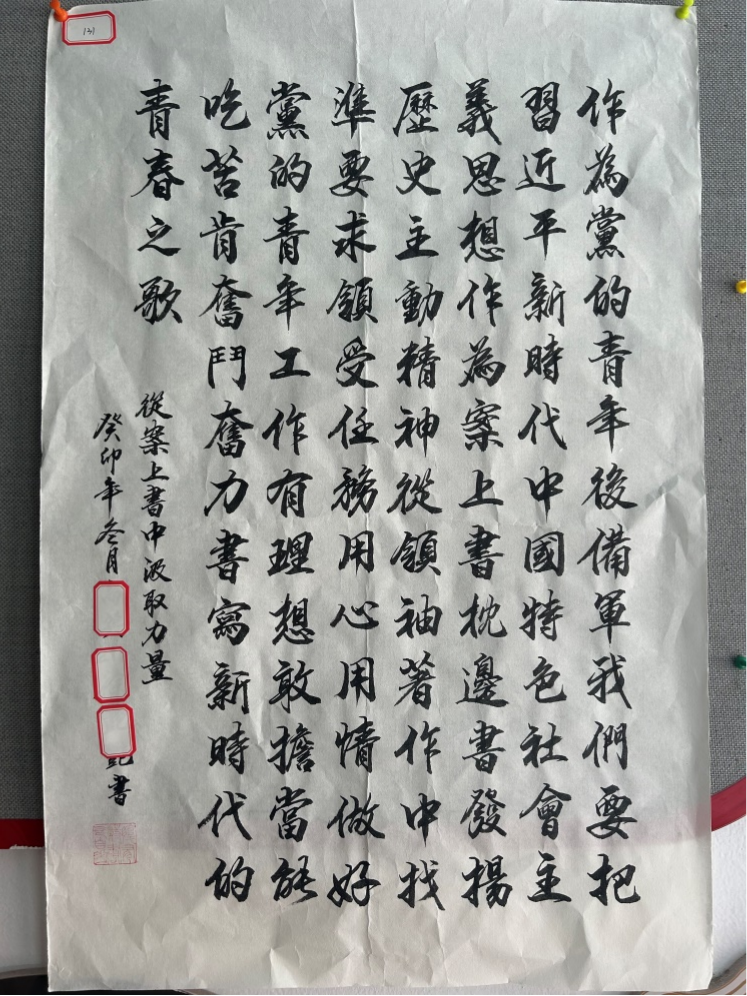 131
作為黨的青年後備軍我們要把
習近平新時代中國特色社會主
義思想作為案上書枕邊書發揚
歷史主動精神從領袖著作中找
準要求領受任務用心用情做好
黨的青年工作有理想敢擔當能
吃苦肯奮鬥奮力書寫新時代的
青春之歌
從案上書中汲取力量
癸卯年冬月
書